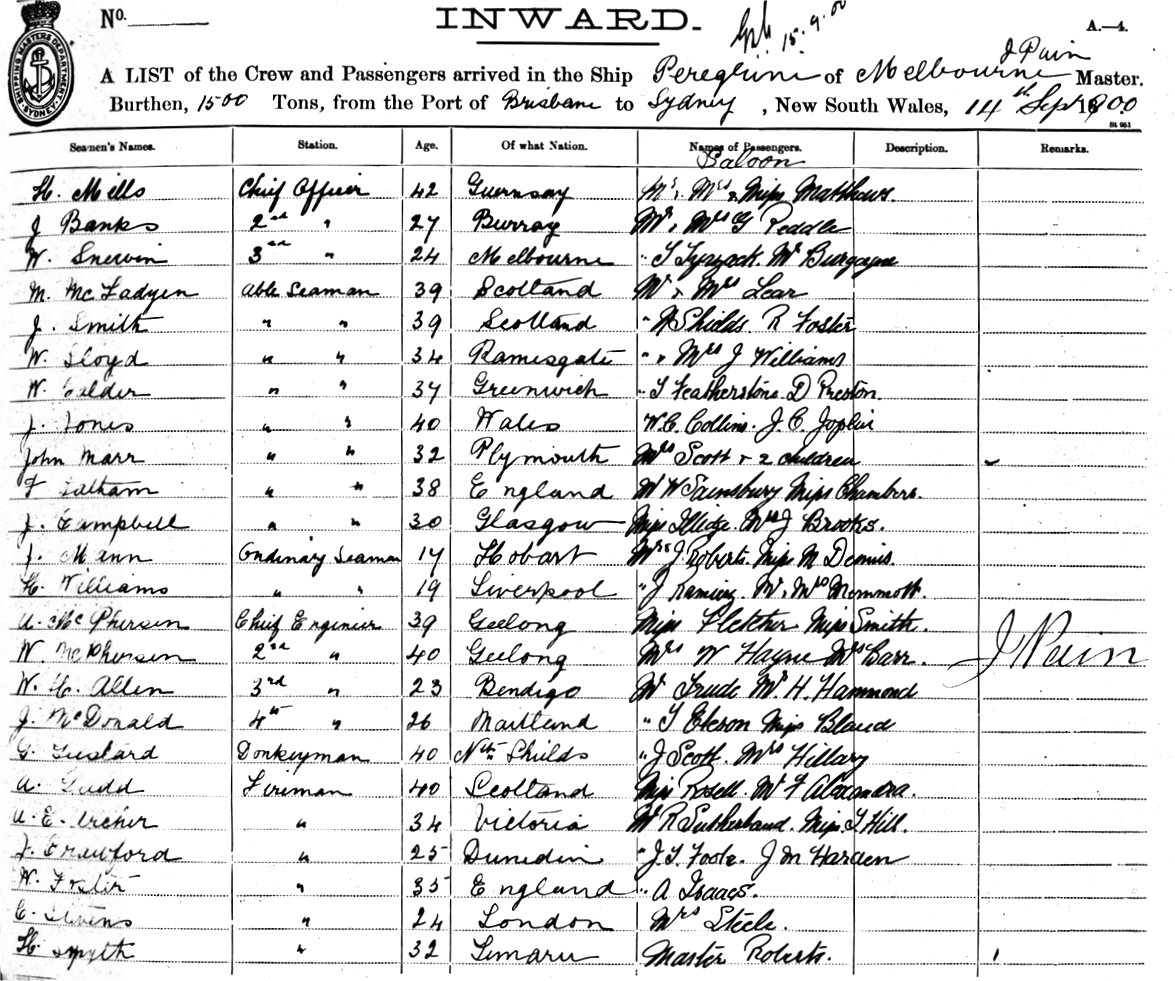 No. INWARD. 15.9.00 A.—4.
J Pain
A LIST of the Crew and Passengers arrived in the Ship Peregrine of Melbourne Master.
Burthen, 1500 Tons, from the Port of Brisbane to Sydney, New South Wales, 14th Sept 1900
St 961
Seamen's Names. Station. Age. Of what Nation. Names of Passengers. Description. Remarks.
Saloon
H. Mills Chief Officer 42 Guernsay Mr, Mrs & Miss Matthews.
J Banks 2nd " 27 Burray Mr, Mrs G Peddle
W. Snewin 3rd " 24 Melbourne " T Tyzack. Mr Burgoyne
M. McFadyen Able Seaman 39 Scotland Mr & Mrs Lear
J. Smith " " 39 Scotland " N Shields R Foster
W. Lloyd " " 34 Ramesgate " & Mrs J Williams
W Calder " " 37 Greenwich " T Featherstone. D Preston.
J. Jones " " 40 Wales W.C. Collins. J.C. Joplin
John Marr " " 32 Plymouth Mrs Scott & 2 children
F Latham " " 38 England Mr W Sainsbury Miss Chambers.
J. Campbell " " 30 Glasgow Miss Illidge. Mrs J Brooks.
J. Mann Ordinary Seaman 17 Hobart Mrs J. Roberts. Miss M Dennis.
H. Williams " " 19 Liverpool " J Ramsey. Mr, Mrs Memmott.
A. McPhersen Chief Enginier 39 Geelong Miss Fletcher Miss Smith.
W. McPhersen 2nd " 40 Geelong Mrs W Hayne Mrs Barr. J Pain
W. H. Allen 3rd " 23 Bendigo Mr Trude Mr H. Hammond
J. McDonald 4th " 26 Maitland " T Eleson Miss Bland
G. Gustard Donkeyman 40 Nth Shields " J Scott. Mrs Hillary
A. Gudd Fireman 40 Scotland Miss Rosell. Mr F Alexandra.
A. E. Archer " 34 Victoria Mr R Sutherland. Miss T Hill.
J. Crawford " 25 Dunedin " J. T. Foole. J M Harden
W. Foster " 35 England " A Isaacs.
C. Stevens " 24 London Mrs Steele.
H Smyth " 32 Timaru Master Roberts.